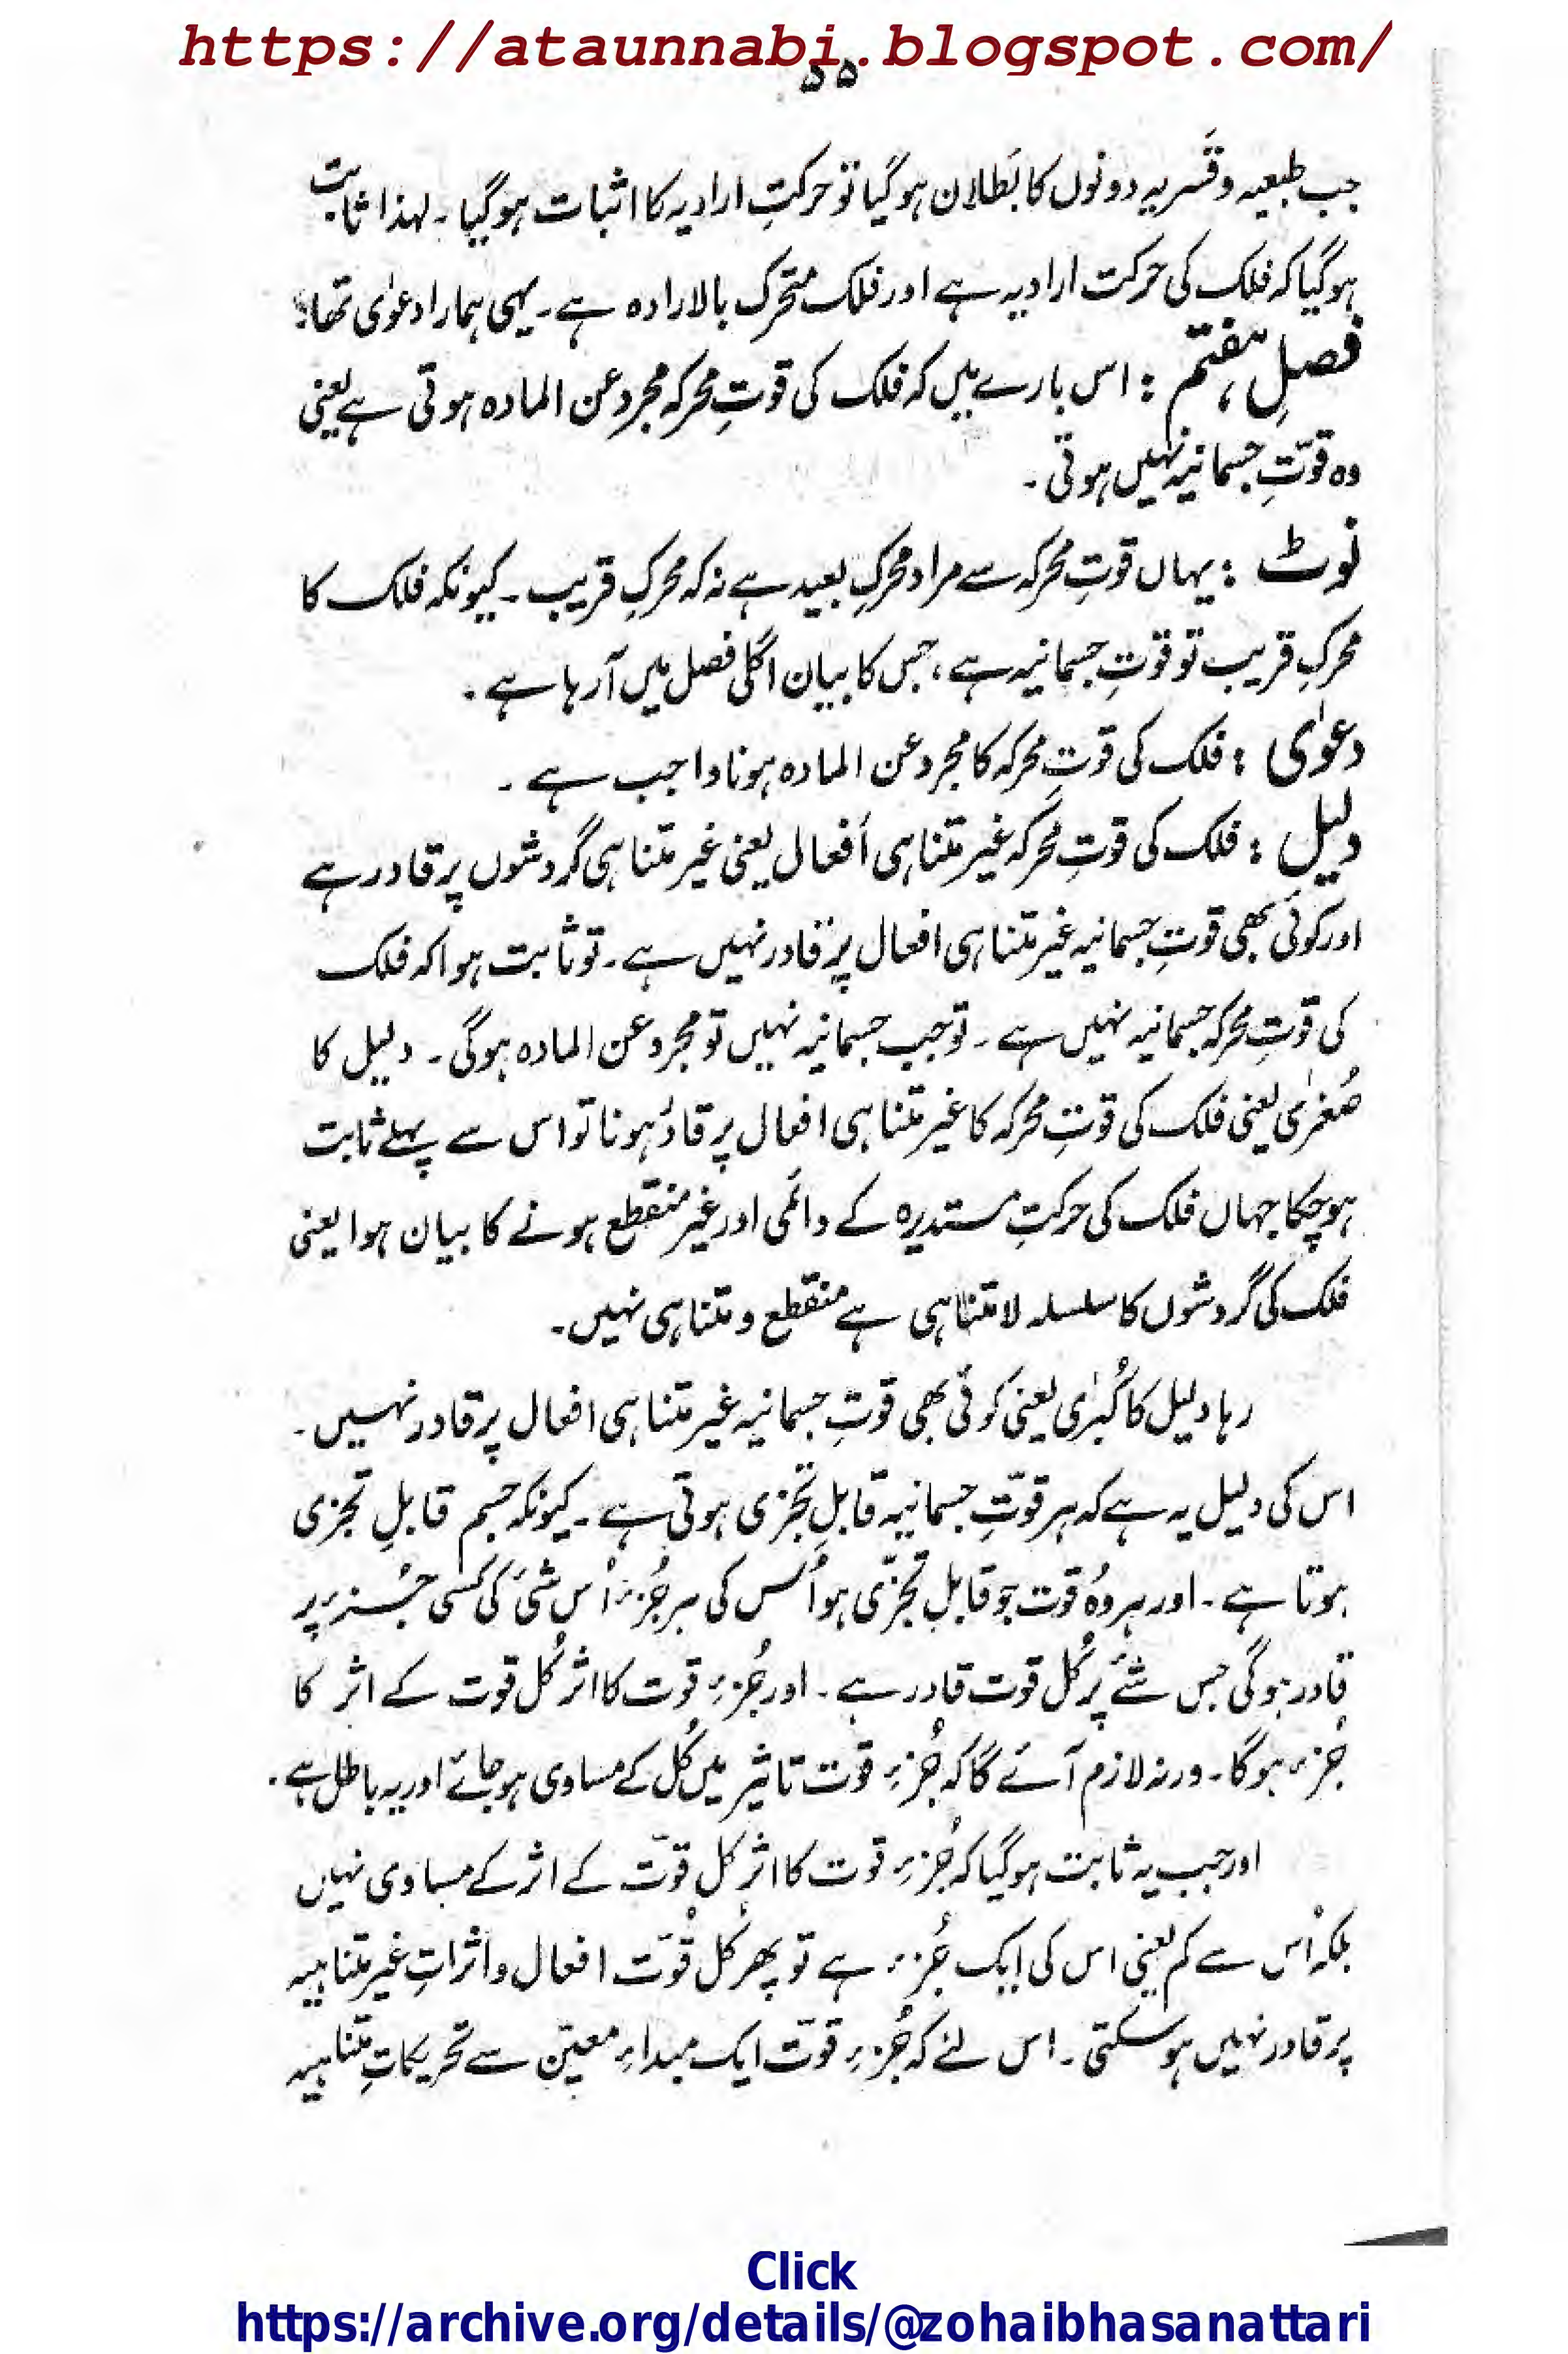 https://ataunnabi.blogspot.com/
۵۵
جب طبعیہ و قَسریہ دونوں کا بُطلان ہوگیا تو حرکتِ ارادیہ کا اثبات ہوگیا ۔ لہذا ثابت
ہوگیا کہ فلک کی حرکت ارادیہ ہے اور فلک متحرک بالارادہ ہے ۔ یہی ہمارا دعوٰی تھا؛
فصلِ ہفتم : اس بارے میں کہ فلک کی قوتِ محرکہ مجرد عن المادہ ہوتی ہے یعنی
وہ قوّتِ جسمانیہ نہیں ہوتی ۔
نوٹ : یہاں قوتِ محرکہ سے مراد محرکِ بعید ہے نہ کہ محرکِ قریب ۔ کیونکہ فلک کا
محرکِ قریب تو قوّتِ جسمانیہ ہے ، جس کا بیان اگلی فصل میں آرہا ہے ۔
دعوٰی : فلک کی قوّتِ محرکہ کا مجرد عن المادہ ہونا واجب ہے ۔
دلیل : فلک کی قوتِ محرکہ غیر متناہی اَفعال یعنی غیر متناہی گردشوں پر قادر ہے
اور کوئی بھی قوتِ جسمانیہ غیر متناہی افعال پر قادر نہیں ہے ۔ تو ثابت ہوا کہ فلک
کی قوّتِ محرکہ جسمانیہ نہیں ہے ۔ تو جب جسمانیہ نہیں تو مجرد عن المادہ ہوگی ۔ دلیل کا
صُغرٰی یعنی فلک کی قوتِ محرکہ کا غیر متناہی افعال پر قادر ہونا تو اس سے پہلے ثابت
ہوچکا جہاں فلک کی حرکتِ مستدیرہ کے دائمی اور غیر منقطع ہونے کا بیان ہوا یعنی
فلک کی گردشوں کا سلسلہ لا متناہی ہے منقطع و متناہی نہیں ۔
رہا دلیل کا کُبرٰی یعنی کوئی بھی قوتِ جسمانیہ غیر متناہی افعال پر قادر نہیں ۔
اس کی دلیل یہ ہے کہ ہر قوّتِ جسمانیہ قابلِ تجزی ہوتی ہے ۔ کیونکہ جسم قابلِ تجزی
ہوتا ہے ۔ اور ہر وہ قوت جو قابلِ تجزّی ہو اُس کی ہر جُزء اُس شئ کی کسی جُزء پر
قادر ہوگی جس شے پر کُل قوت قادر ہے ۔ اور جُزءِ قوت کا اثر کُل قوت کے اثر کا
جُزء ہوگا ۔ ورنہ لازم آئے گا کہ جُزءِ قوت تاثیر میں کُل کے مساوی ہوجائے اور یہ باطل ہے ۔
اور جب یہ ثابت ہوگیا کہ جُزءِ قوت کا اثر کل قوّت کے اثر کے مساوی نہیں
بلکہ اُس سے کم یعنی اس کی ایک جُزء ہے تو پھر کُل قوّت افعال و اثراتِ غیر متناہیہ
پر قادر نہیں ہوسکتی ۔ اس لئے کہ جُزءِ قوّت ایک مبداءِ معیّن سے تحریکاتِ متناہیہ
Click
https://archive.org/details/@zohaibhasanattari